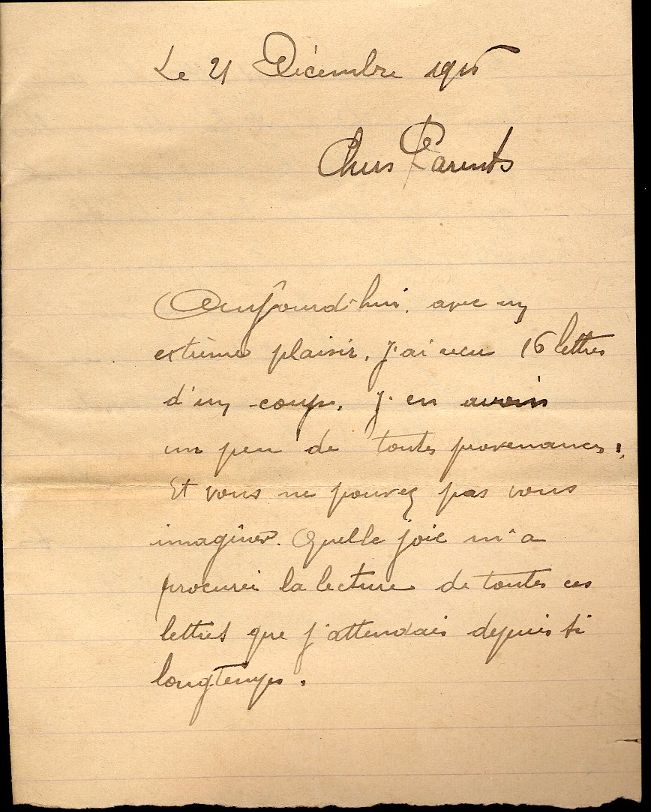 Le 21 Décembre 1915
Chers Parents
Aujourd'hui, avec un
extrême plaisir, j'ai reçu 16 lettres
d'un coup. J'en avais
un peu de toutes provenances.
Et vous ne pouvez pas vous
imaginer. Quelle joie m'a
procurée la lecture de toutes ces
lettres que j'attendais depuis si
longtemps.